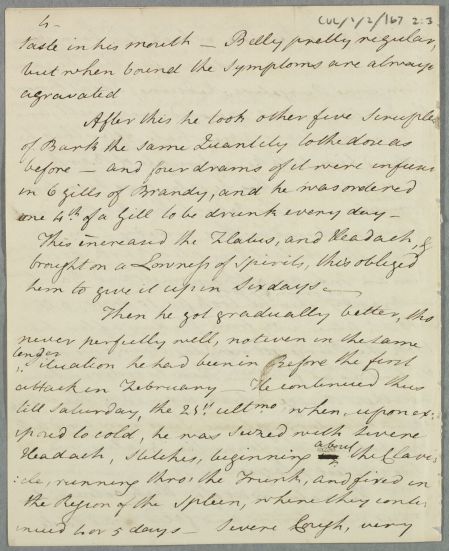 4.
CUL/1/2/167 2:3
taste in his mouth — Belly pretty regular,
but when bound the Symptoms are always
agravated
After this he took other five Scruples
of Bark the same Quantity to the dose as
before — and four drams of it were infus'd
in 6 Gills of Brandy, and he was ordered
one 4th of a Gill to be drunk every day —
This increased the Flatus, and Headach, &
brought on a Lowness of Spirits, this obliged
him to give it up in Six days —
Then he got gradually better, tho
never perfectly well, not even in the same
tender
Situation he had been in Before the first
attack in February — He continued thus
till Saturday, the 25th ult mo when, upon ex:
:posed to cold, he was Seized with Severe
Headach, Stitches, beginning about the Clave:
:cle, running thro: the Trunk, and fixed in
the Region of the Spleen, where they conti:
nued 4 or 5 days — Severe Cough, very